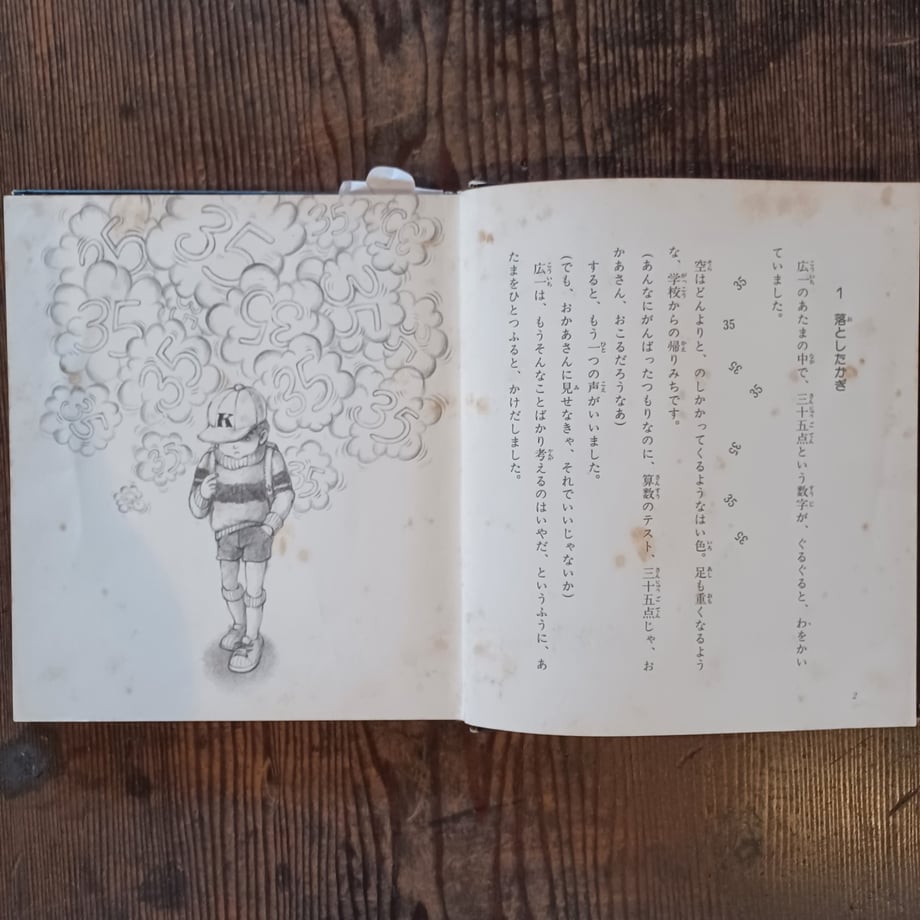 1 落としたかぎ
広一のあたまの中で、三十五点という数字が、ぐるぐると、わをかい
ていました。
35
35
35
35
35
35
35
空はどんよりと、のしかかってくるようなはい色。足も重くなるよう
な、学校からの帰りみちです。
(あんなにがんばったつもりなのに、算数のテスト、三十五点じゃ、お
かあさん、おこるだろうなあ)
すると、もう一つの声がいいました。
(でも、おかあさんに見せなきゃ、それでいいじゃないか)
広一は、もうそんなことばかり考えるのはいやだ、というふうに、あ
たまをひとつふると、かけだしました。
2
35
35
35
35
35
35
35
35
35
35
35
35
35
K